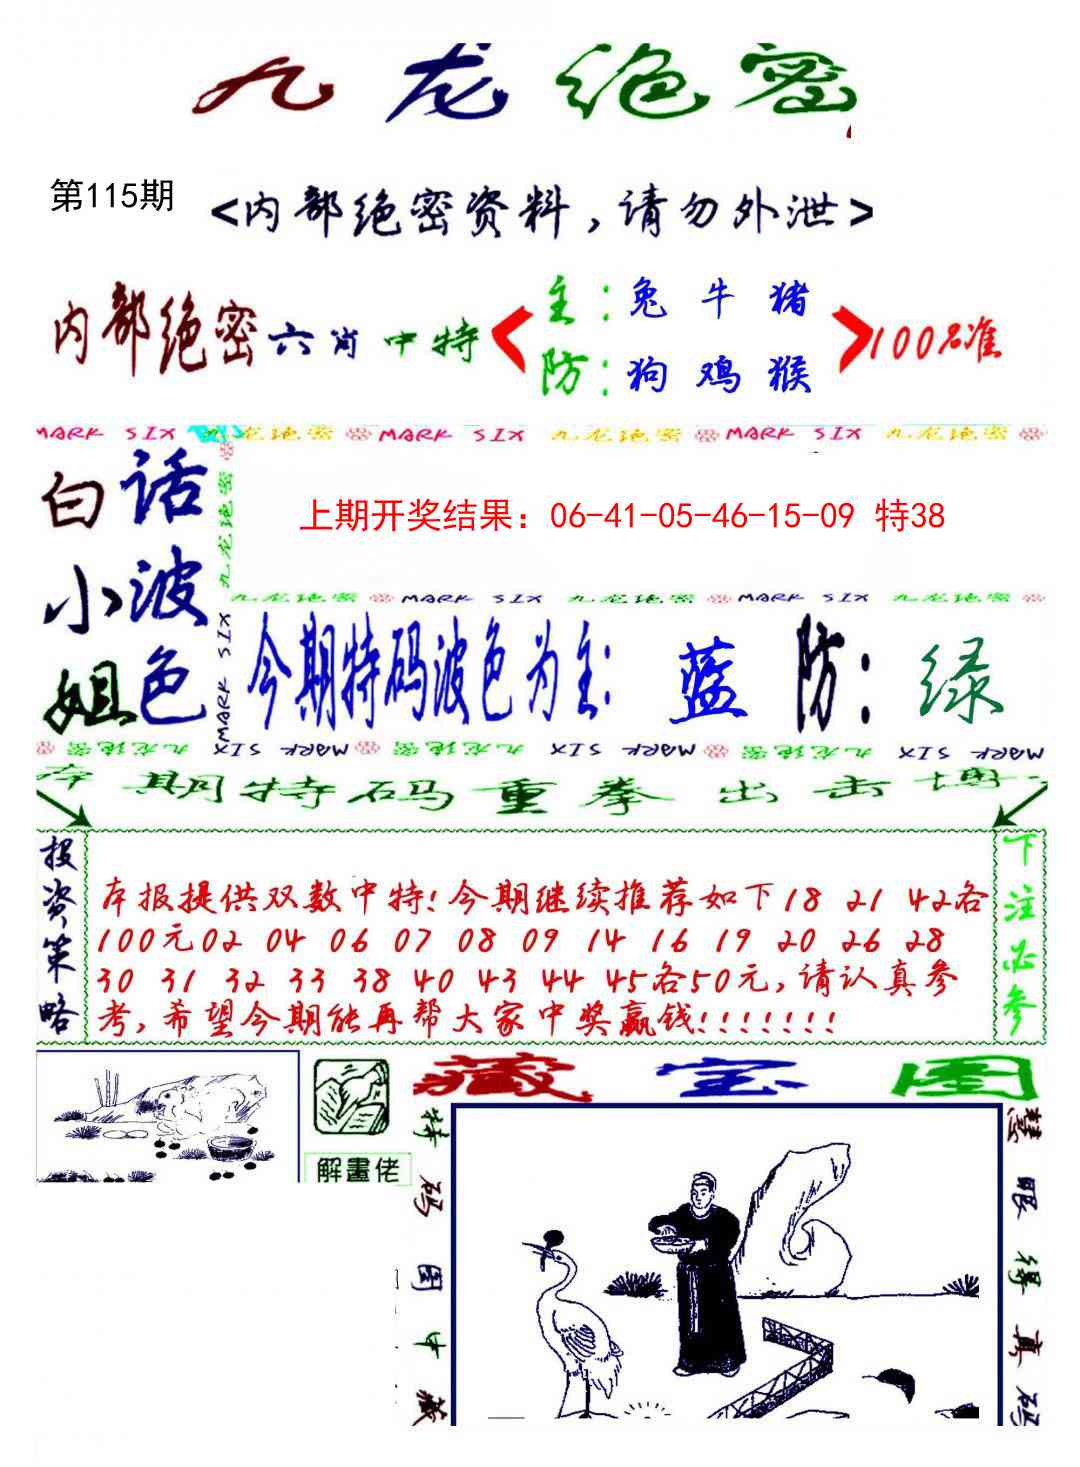 九龙绝密
第115期
<内部绝密资料,请勿外泄>
内部绝密六肖中特
主:兔 牛 猪
防:狗 鸡 猴
100%准
MARK SIX 九龙绝密 MARK SIX 九龙绝密 MARK SIX 九龙绝密
白小姐
话波色
九龙绝密
MARK SIX
上期开奖结果: 06-41-05-46-15-09 特38
九龙绝密 MARK SIX 九龙绝密 MARK SIX 九龙绝密
今期特码波色为主: 蓝 防: 绿
九龙绝密 MARK SIX 九龙绝密 MARK SIX 九龙绝密 MARK SIX
本期特码重拳出击博
投资策略
本报提供双数中特!今期继续推荐如下18 21 42各
100元02 04 06 07 08 09 14 16 19 20 26 28
30 31 32 33 38 40 43 44 45各50元,请认真参
考,希望今期能再帮大家中奖赢钱!!!!!!!
下注必参
解畫佬
藏宝图
特码图中藏
慧眼得真码